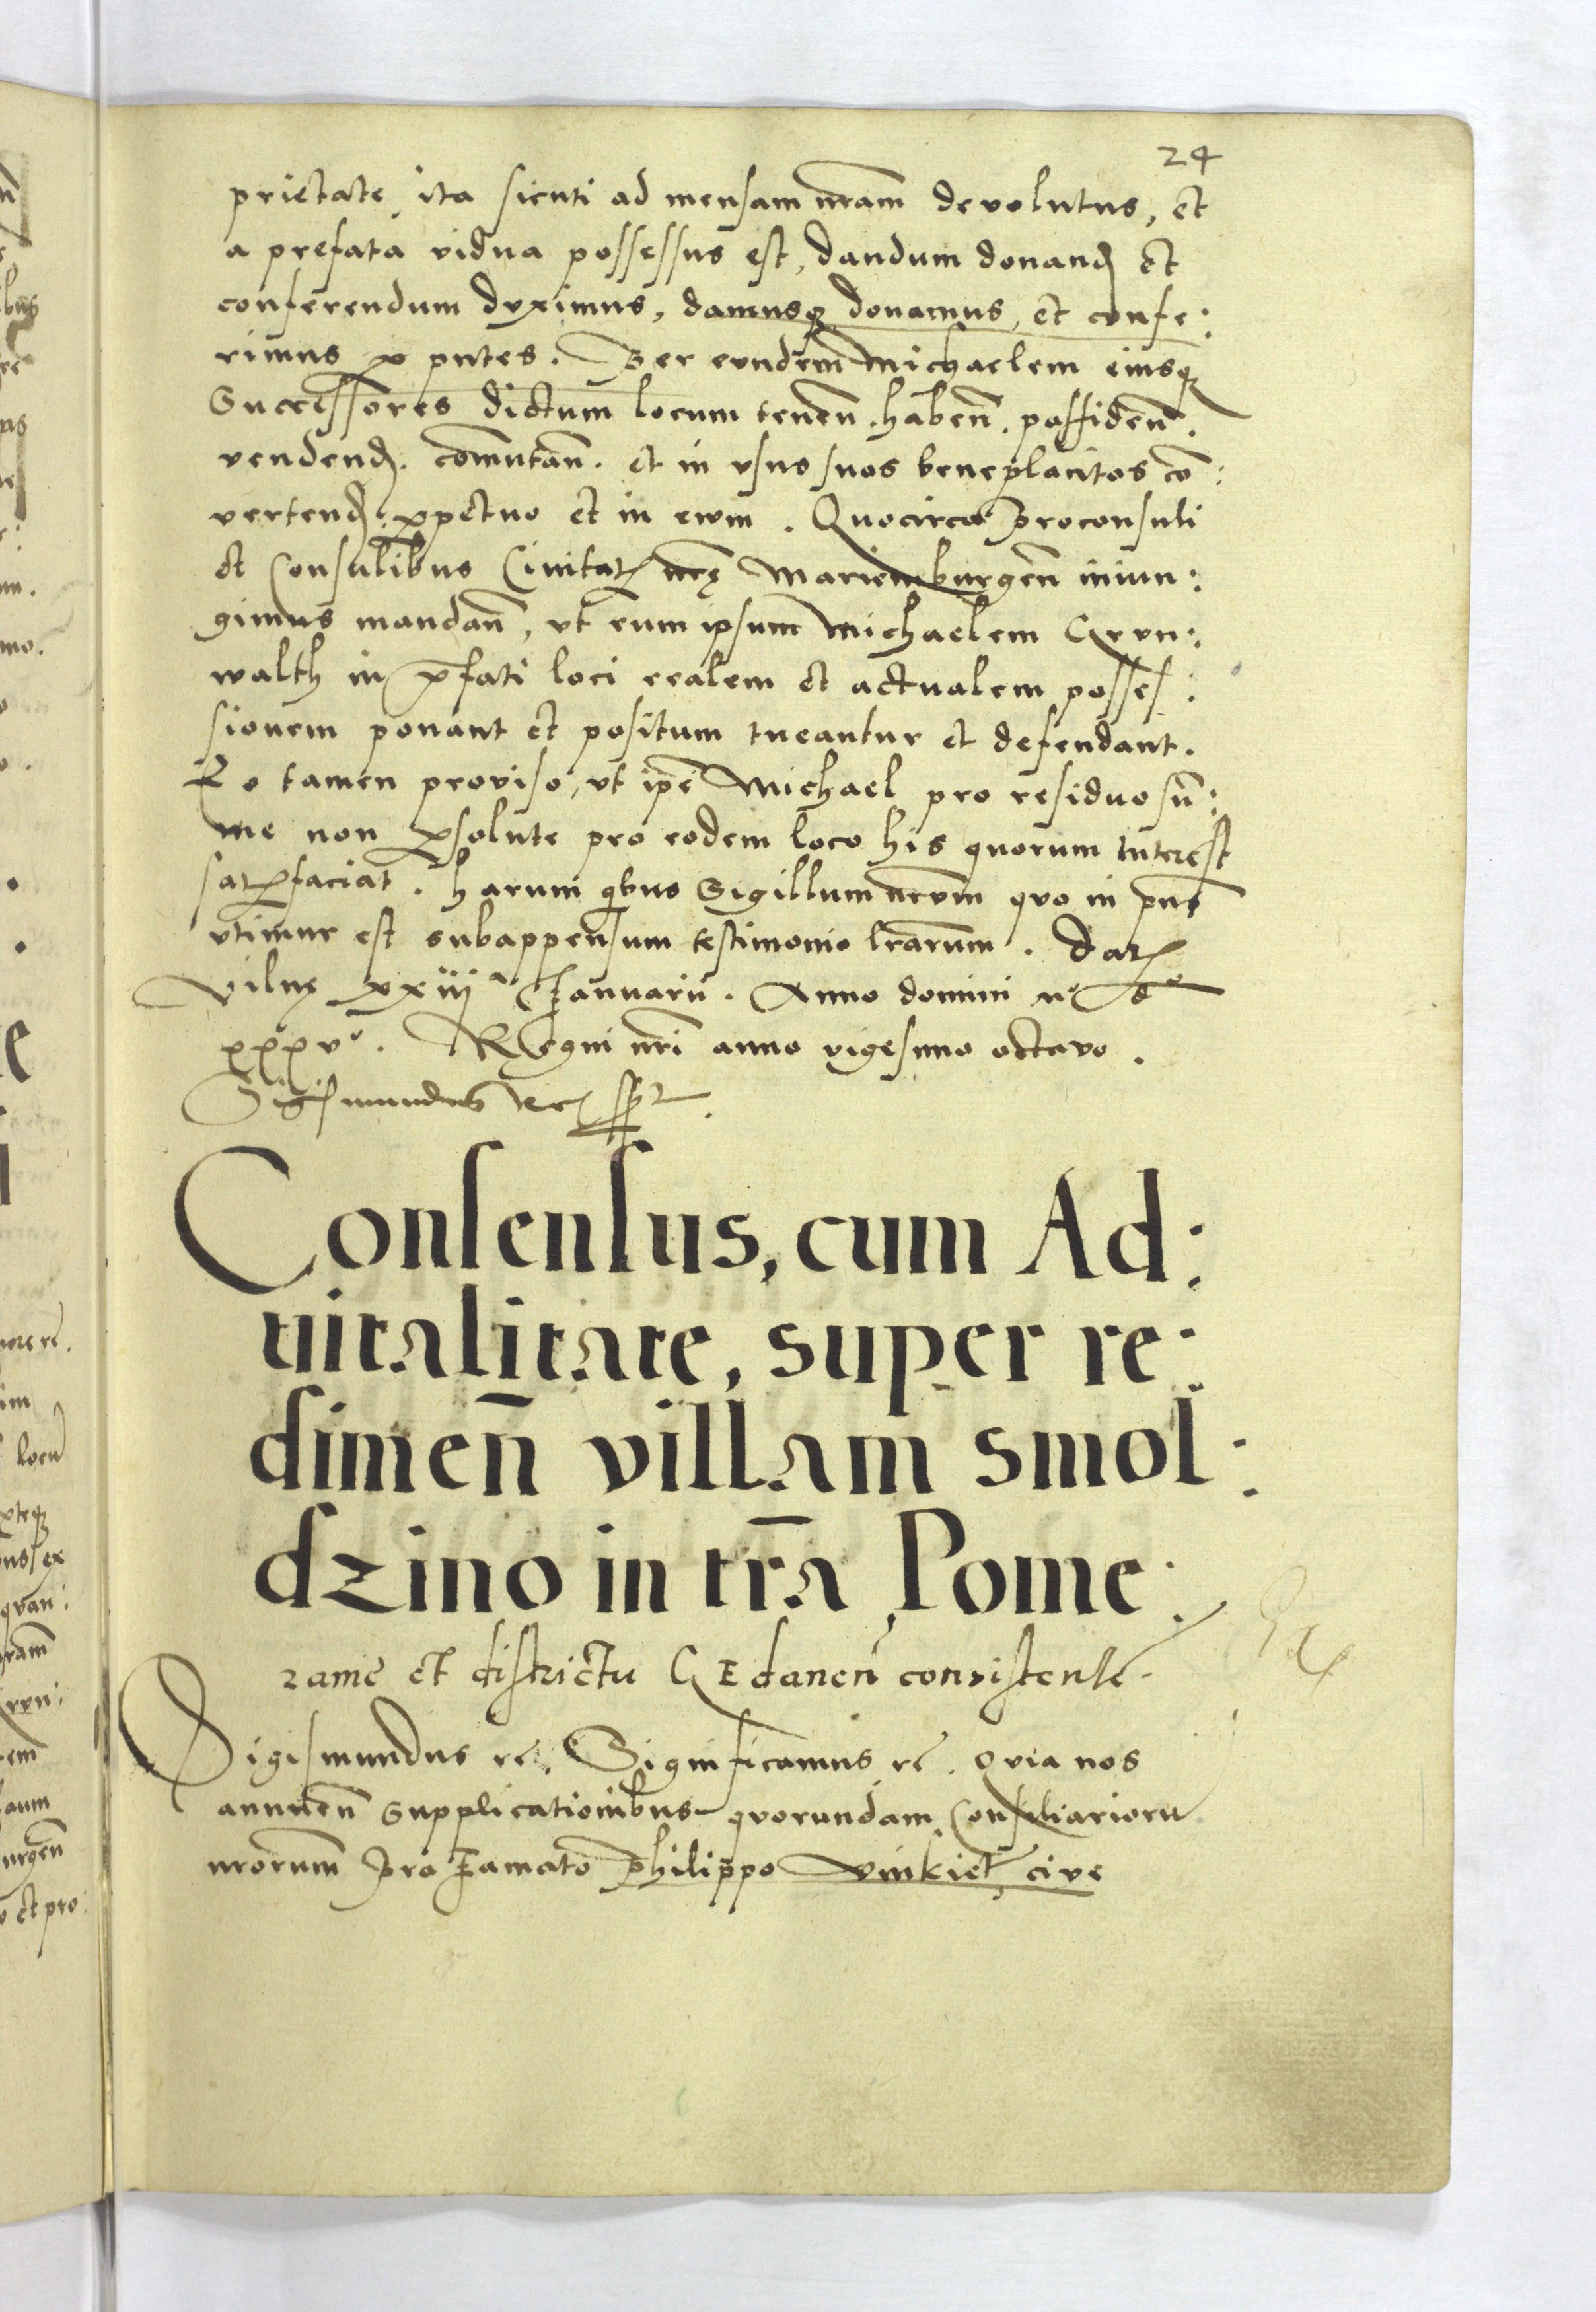 24
prietate, ita sicuti ad mensam nr̃am devolutus, et
a prefata vidua possessus est, dandum donanḍ et
conferendum duximus, damusqꝫ donamus, et confe:
rimus ꝑ pñtes. Per eundem Michaelem eiusqꝫ
Successores dictum locum teneñ. habeñ. possideñ.
vendenḍ. com̃utañ. et in usus suos beneplacitos cõ:
vertenḍ. ꝑpetuo et in evum. Quocirca proconsuli
et Consulibus Civitatꝭ nrę̃ Mariemburgeñ iniun:
gimus mandañ, ut eum ipsum Michaelem Grun:
walth in p̃fati loci realem et actualem posses:
sionem ponant et positum tueantur et defendant.
Eo tamen proviso, ut ip̃e Michael pro residuo sũ:
me non ꝑsolute pro eodem loco his quorum interest
satꝭfaciat. Harum qbus Sigillum nr̃um quo in p̃ns
utimur est subappensum testimonio lr̃arum. Datꝭ
Vilnę xxiij Januarii. Anno domini Mº dº
xxxvº. Regni nr̃i anno vigesimo octavo.
Sigismundus Rex sst.
Consensus, cum Ad:
vitalitate, super re:
dimeñ villam smol:
dzino in tr̃a Pome:
ranie et districtu Gedaneñ consistenteᷓ.
Sigismundus rc̃. Significamus rc̃. Quia nos
annueñ supplicationibus quorundam Consiliarioru
nr̃orum pro Famato Philippo Vinkiel, cive